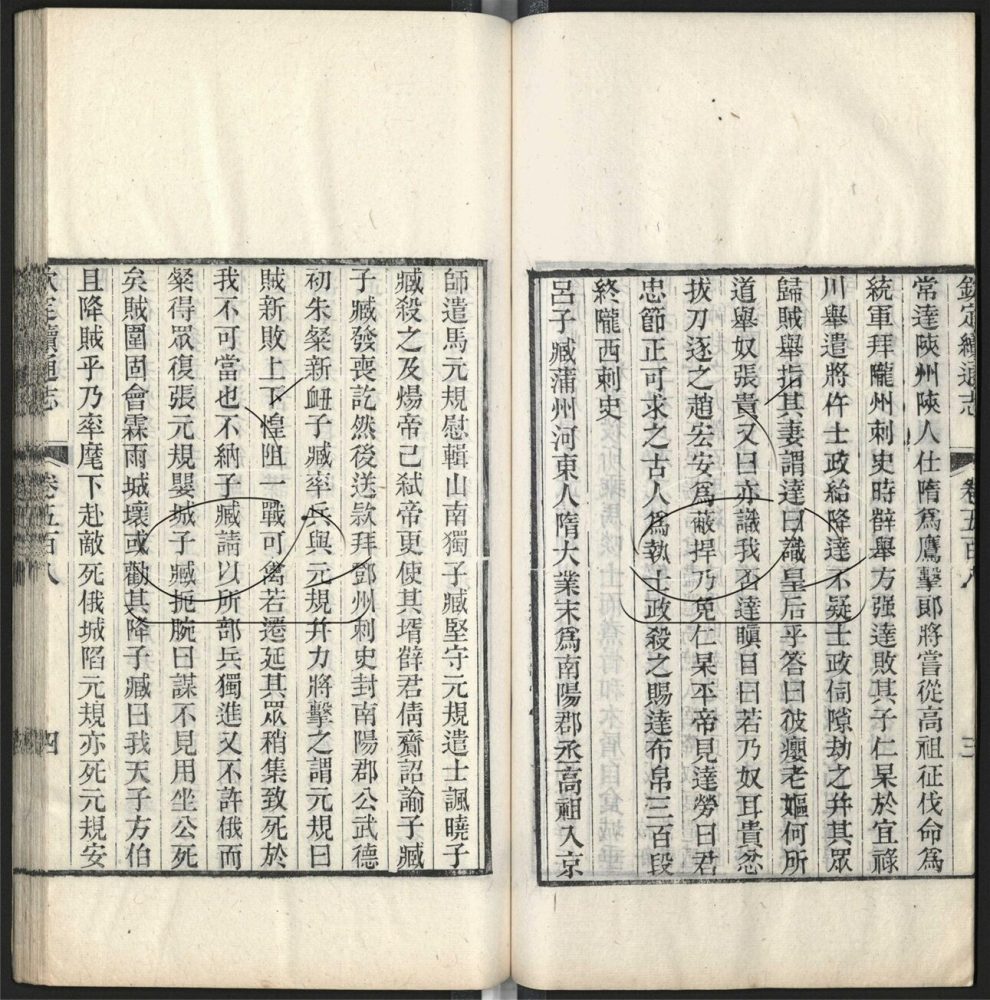 欽定續通志　卷五百八　三
常達陝州陝人仕隋為鷹擊郎將嘗從高祖征伐命爲
統軍拜隴州刺史時薛舉方强達敗其子仁杲於宜祿
川舉遣將仵士政紿降達不疑士政伺隙劫之幷其眾
歸賊舉指其妻謂達曰識皇后乎答曰彼癭老嫗何所
道舉奴張貴又曰亦識我否達瞋目曰若乃奴耳貴忿
拔刀逐之趙宏安爲蔽捍乃免仁杲平帝見達勞曰君
忠節正可求之古人爲執士政殺之賜達布帛三百段
終隴西刺史
呂子臧蒲州河東人隋大業末爲南陽郡丞高祖入京
師遣馬元規慰輯山南獨子臧堅守元規遣士諷曉子
臧殺之及煬帝已弑帝更使其壻薛君倩齎詔諭子臧
子臧發喪訖然後送款拜鄧州刺史封南陽郡公武德
初朱粲新衄子臧率兵與元規幷力將擊之謂元規曰
賊新敗上下惶阻一戰可禽若遷延其眾稍集致死於
我不可當也不納子臧請以所部兵獨進又不許俄而
粲得眾復張元規嬰城子臧扼腕曰謀不見用坐公死
矣賊圍固會霖雨城壞或勸其降子臧曰我天子方伯
且降賊乎乃率麾下赴敵死俄城陷元規亦死元規安
欽定續通志　卷五百八　四